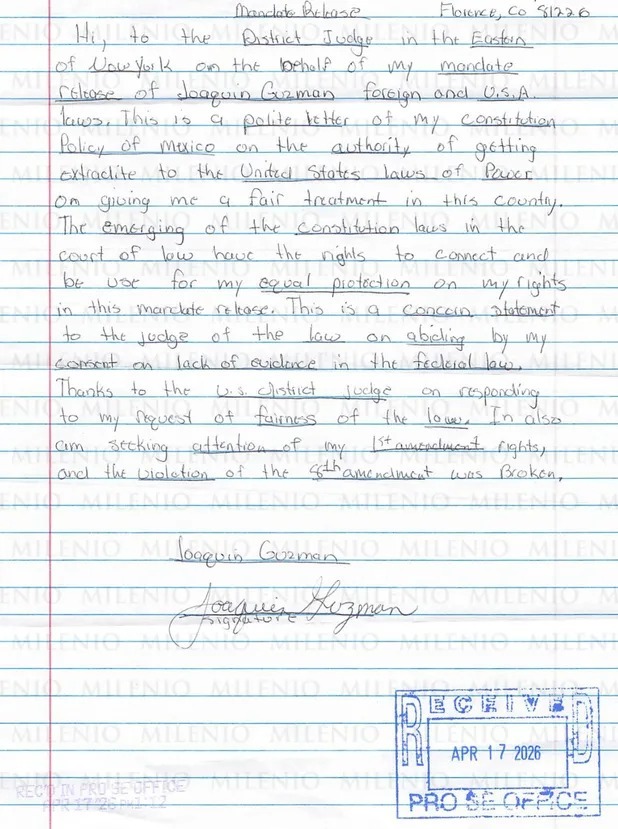 Mandate Release Florence, CO 81226
Hi, to the District Judge in the Eastern
of New York on the behalf of my mandate
release of Joaquin Guzman foreign and U.S.A.
laws. This is a polite letter of my constitution
Policy of mexico on the authority of getting
extradite to the United States laws of Power
on giving me a fair treatment in this country.
The emerging of the constitution laws in the
court of law have the rights to connect and
be use for my equal protection on my rights
in this mandate release. This is a concern statement
to the judge of the law on abiding by my
consent on lack of evidence in the federal law.
Thanks to the U.S. district judge on responding
to my request of fairness of the law. In also
am seeking attention of my 1st amendment rights,
and the violation of the 8th amendment was Broken.
Joaquin Guzman
Joaquin Guzman
Signature
RECEIVED
APR 17 2026
PRO SE OFFICE
REC'D IN PRO SE OFFICE
APR 17 '26 PM1:12
MILENIO